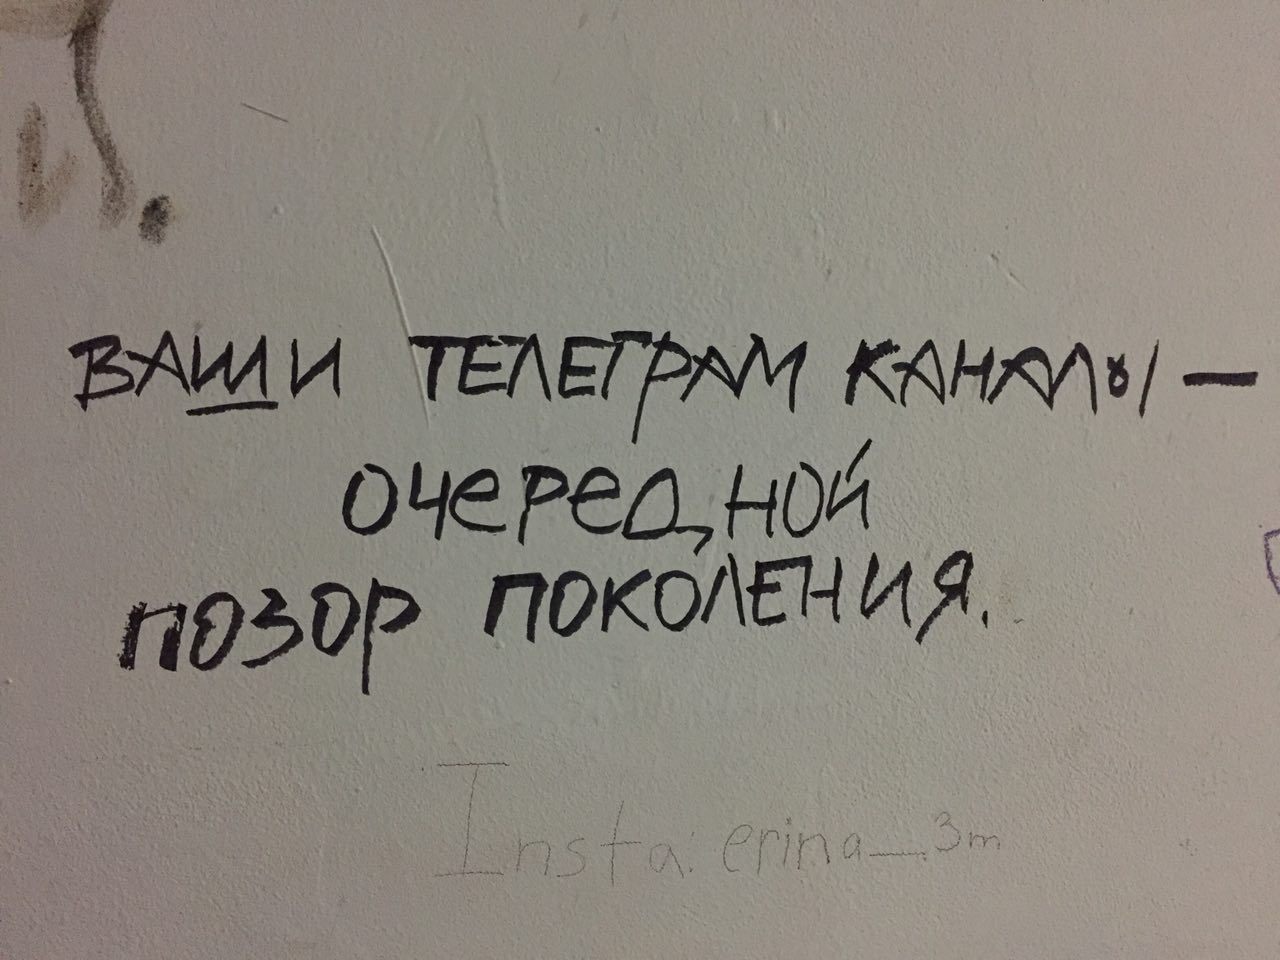 ВАШИ ТЕЛЕГРАМ КАНАЛЫ —
ОЧЕРЕДНОЙ
ПОЗОР ПОКОЛЕНИЯ.
Insta: erina_3m